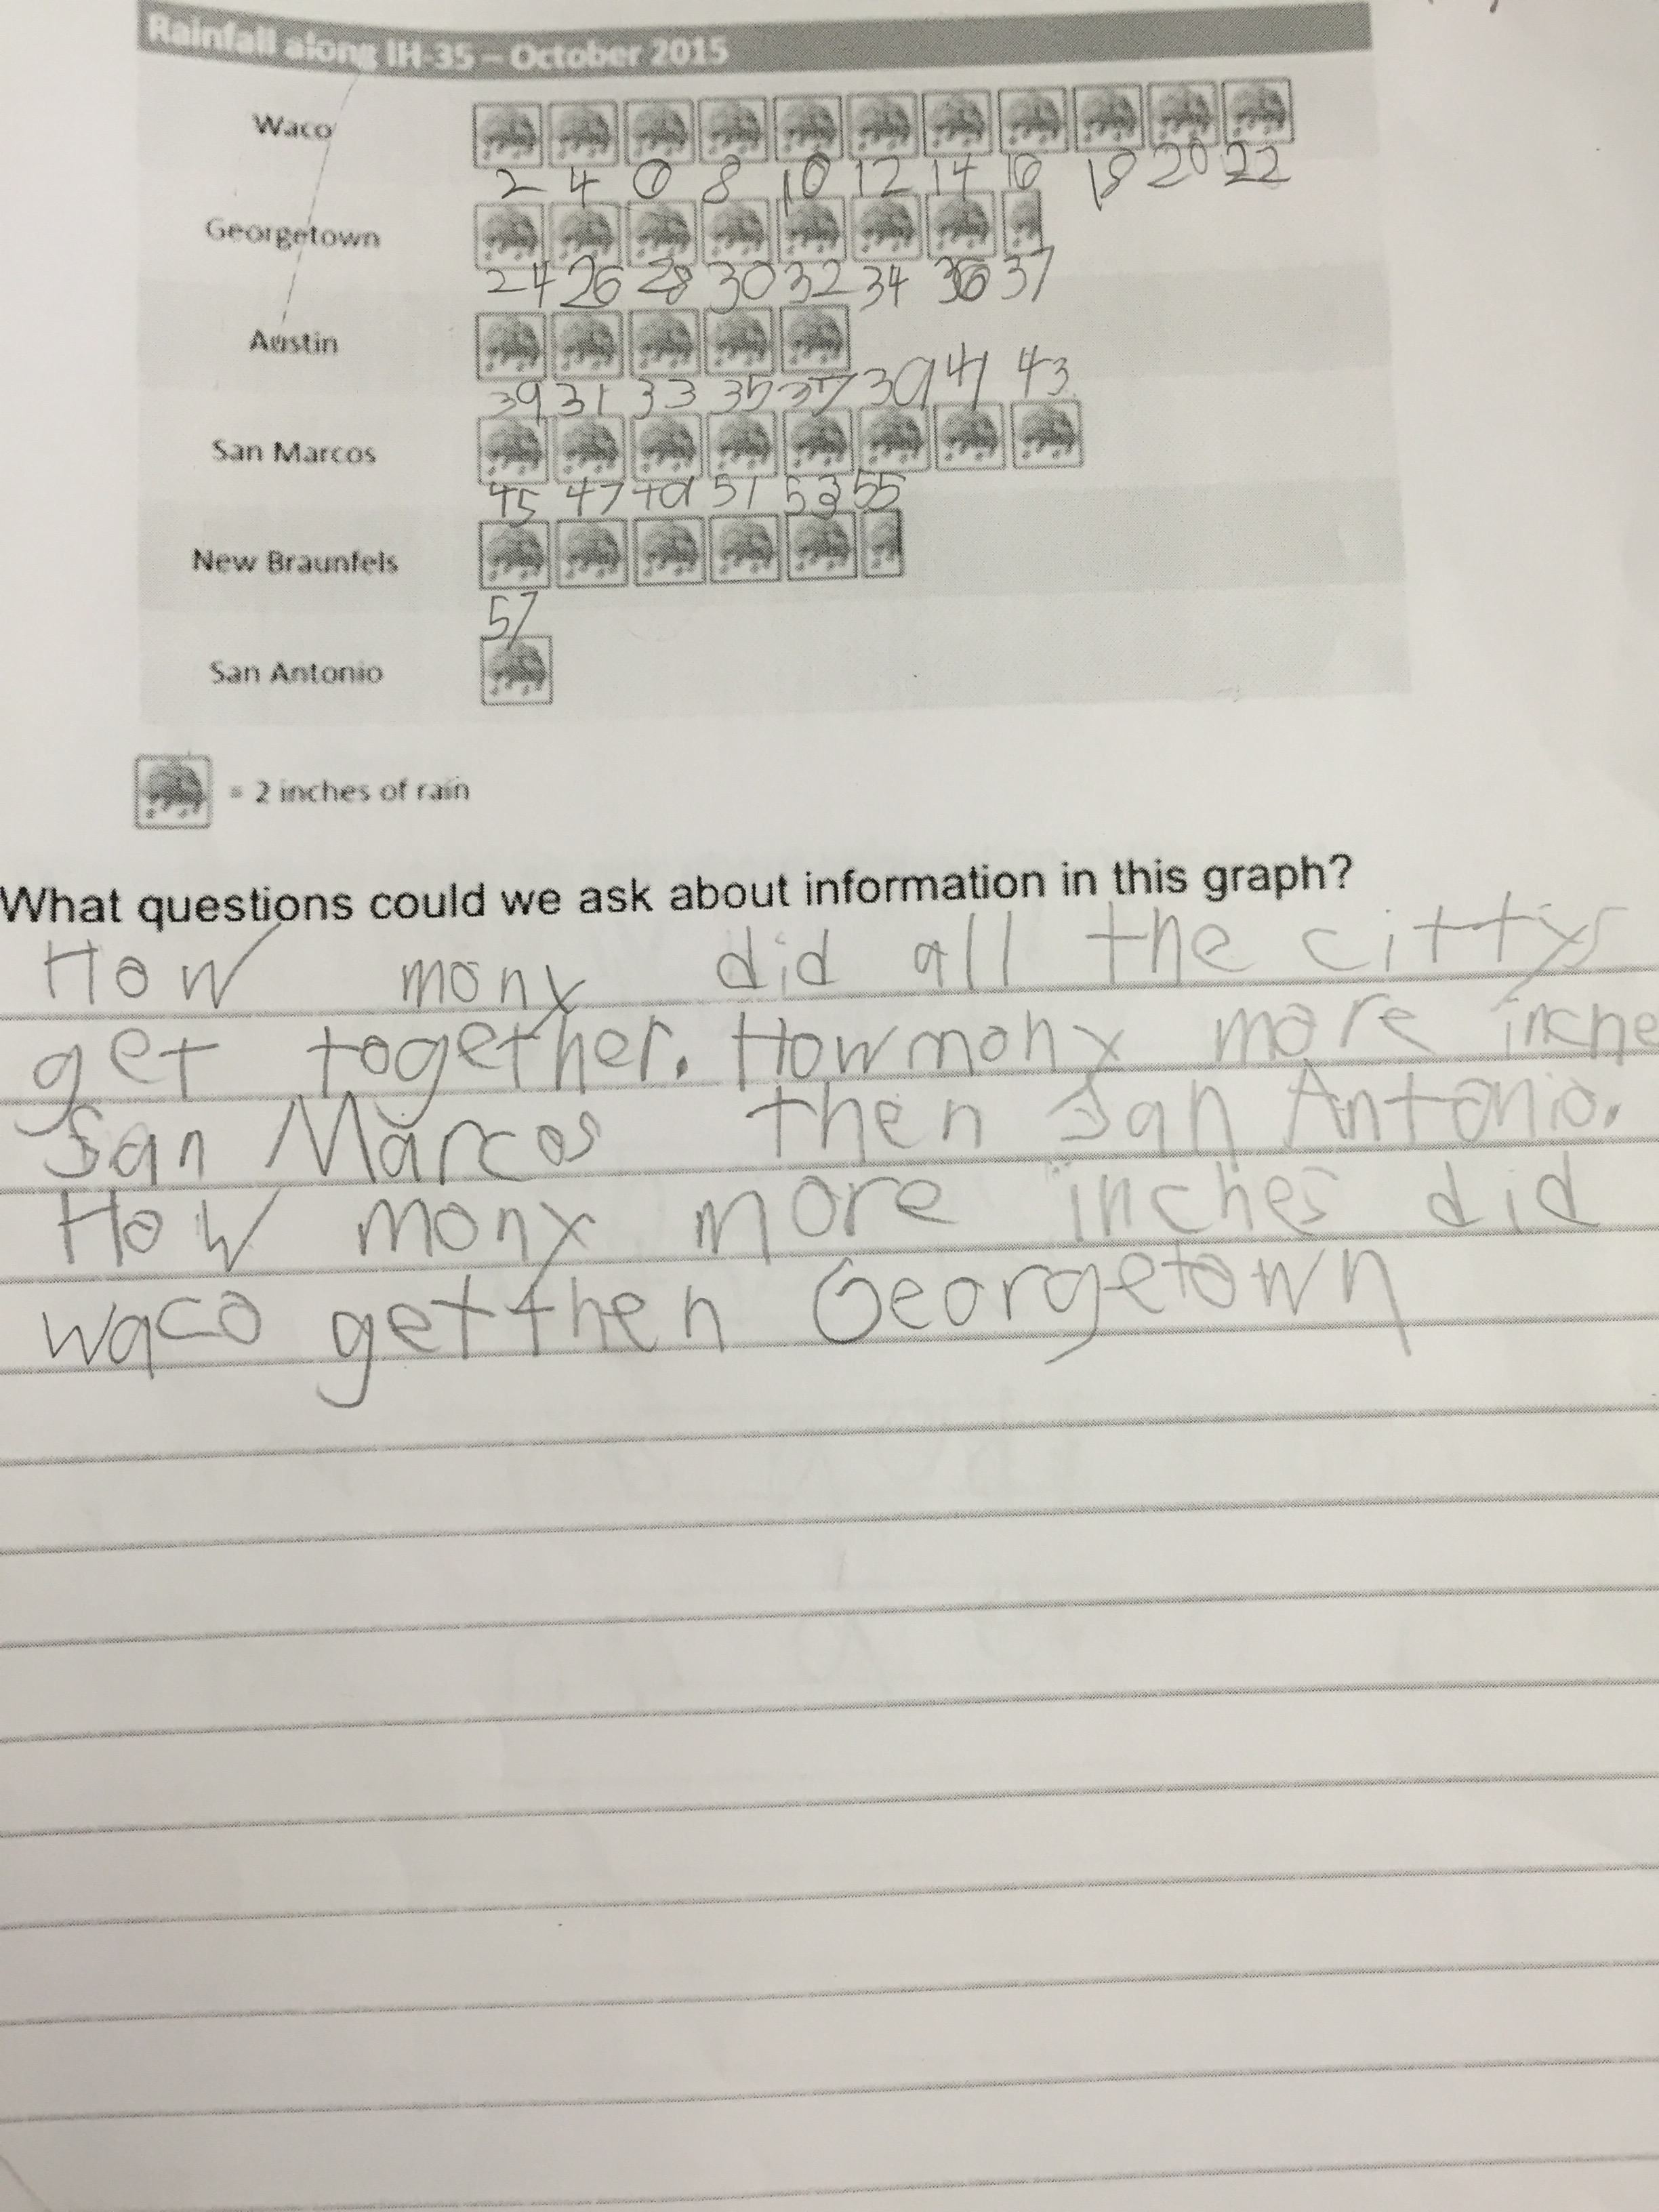 Rainfall along IH-35 – October 2015
Waco
2 4 6 8 10 12 14 16 18 20 22
Georgetown
24 26 28 30 32 34 36 37
Austin
39 31 33 35 37 39 41 43
San Marcos
45 47 49 51 53 55
New Braunfels
57
San Antonio
= 2 inches of rain
What questions could we ask about information in this graph?
How mony did all the cittys
get together. How mony more inche
San Marcos then San Antonio.
How mony more inches did
waco get then Georgetown